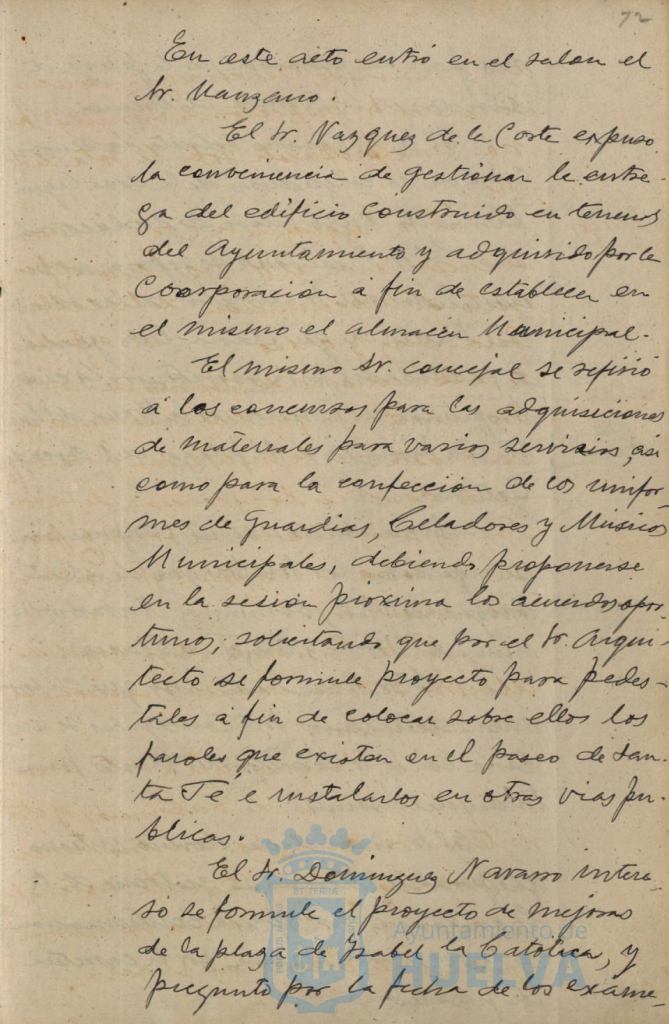 72
En este acto entró en el salon el
Sr. Manzano.
El Sr. Vazquez de la Corte expuso
la conveniencia de gestionar la entre-
ga del edificio construido en terrenos
del Ayuntamiento y adquirido por la
Coorporación a fin de establecer en
el mismo el almacen Municipal.
El mismo Sr. concejal se refirió
á los concursos para las adquisiciones
de materiales para varios servicios, asi
como para la confección de los unifor-
mes de Guardias, Celadores y Músicos
Municipales, debiendo proponerse
en la sesión próxima los acuerdos opor-
tunos, solicitando que por el Sr. Arqui-
tecto se formule proyecto para pedes-
tales á fin de colocar sobre ellos los
faroles que existen en el paseo de San-
ta Fé é instalarlos en otras vias pu-
blicas.
El Sr. Dominguez Navarro intere-
só se formule el proyecto de mejoras
de la plaza de Ysabel la Católica, y
preguntó por la fecha de los exáme-
ET TERRÆ
Ayuntamiento de
HUELVA